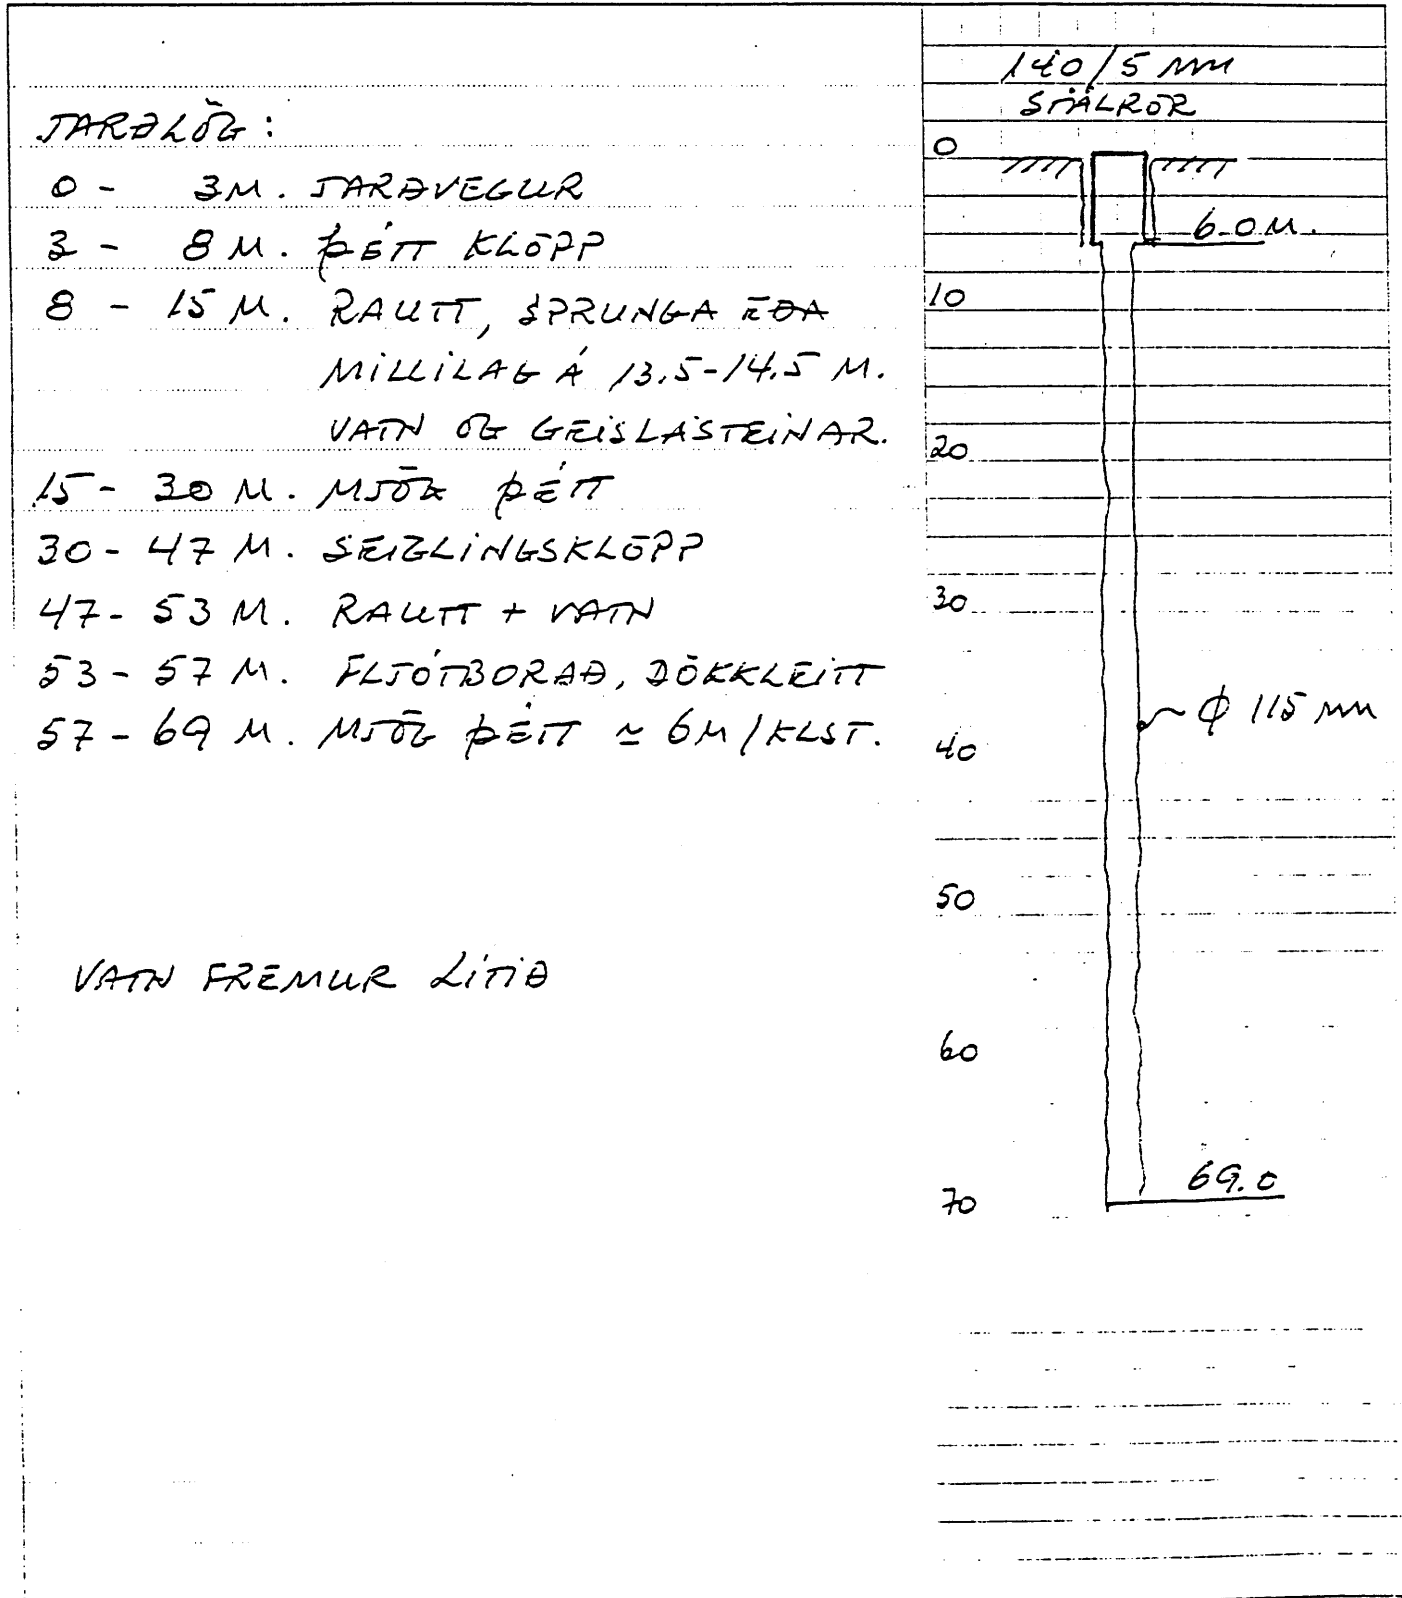 JARÐLÖG:
0 - 3 M. JARÐVEGUR
3 - 8 M. ÞÉTT KLÖPP
8 - 15 M. RAUTT, SPRUNGA EÐA
MILLILAG Á 13.5-14.5 M.
VATN OG GEISLASTEINAR.
15 - 30 M. MJÖG ÞÉTT
30 - 47 M. SEIGLINGSKLÖPP
47 - 53 M. RAUTT + VATN
53 - 57 M. FLJÓTBORAÐ, DÖKKLEITT
57 - 69 M. MJÖG ÞÉTT ≃ 6M/KLST.
VATN FREMUR LÍTIÐ
140/5 MM
STÁLRÖR
0
6.0 M.
10
20
30
Φ 115 MM
40
50
60
69.0
70